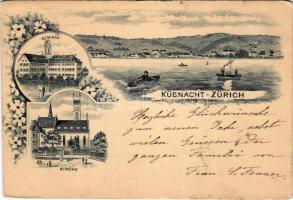 SEMINAR
KÜSNACHT-ZÜRICH
KIRCHE
Herzliche Glückwünsche
zum neuen Jahr nebst
vielen Grüssen & der
ganzen Familie von
Frau S. Fenner